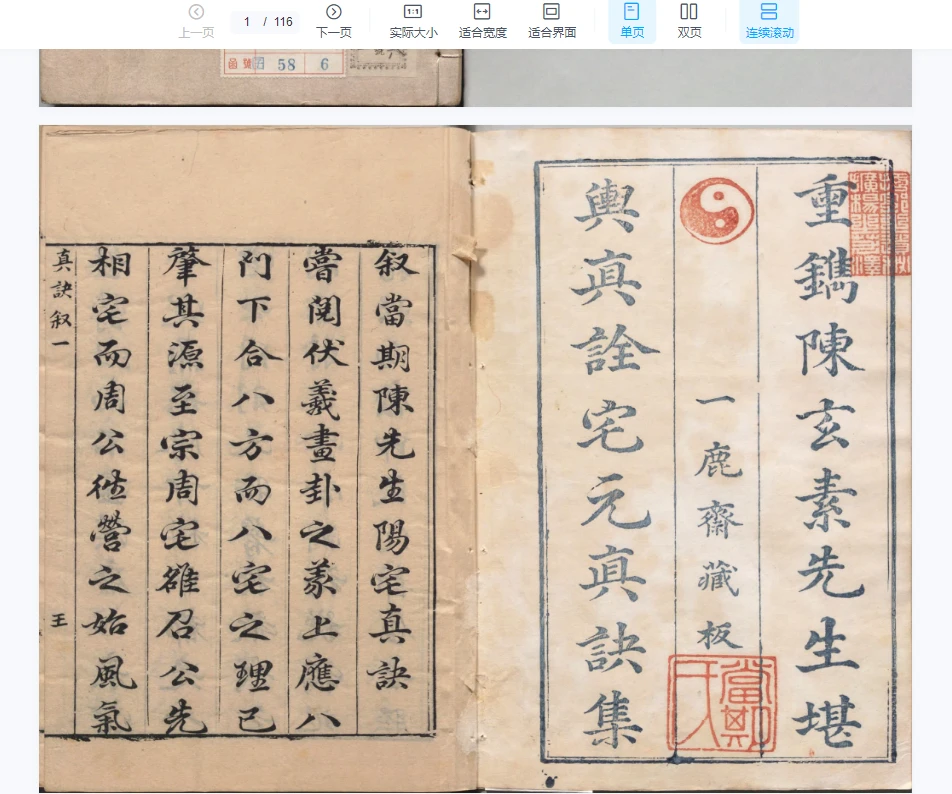 上一页
1 / 116
下一页
1:1
实际大小
适合宽度
适合界面
单页
双页
连续滚动
58 6
重鐫陳玄素先生堪
一鹿齋藏板
輿真詮宅元真訣集
當期氏人
叙當期陳先生陽宅真訣
嘗閱伏羲畫卦之義上應八
門下合八方而八宅之理已
肇其源至宗周宅雒召公先
相宅而周公徃營之始風氣
真訣叙一
王